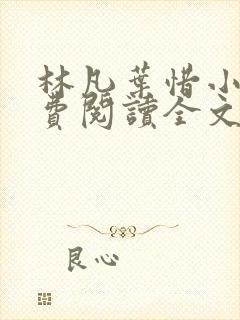 林凡葉惜小
費閱讀全文
良心